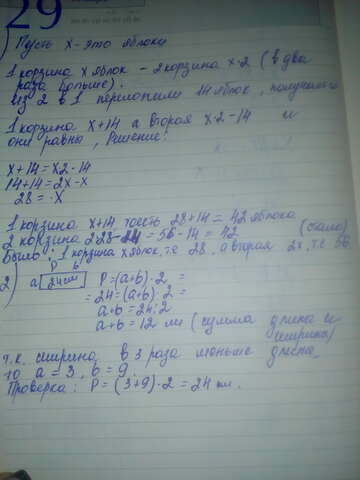 29
Пусть х - это яблоки
1 корзина х яблок - 2 корзина х·2 (в два
раза больше).
из 2 в 1 переложили 14 яблок, получилось
1 корзина х+14 а вторая х·2-14 и
они равны, Решение:
х+14 = х2-14
14+14 = 2х-х
28 = х
1 корзина х+14 тоесть 28+14 = 42 яблока
2 корзина 2·28-14 = 56-14 = 42 (стало)
Было: 1 корзина х яблок, т.е 28, а вторая 2х, т.е 56
2) P b
а 24см P = (a+b)·2 =
= 24 = (a+b)·2 =
a+b = 24:2
a+b = 12 м (сумма длина и
ширины)
т.к. ширина в 3 раза меньше длины
то a = 3, b = 9.
Проверка: P = (3+9)·2 = 24 см.